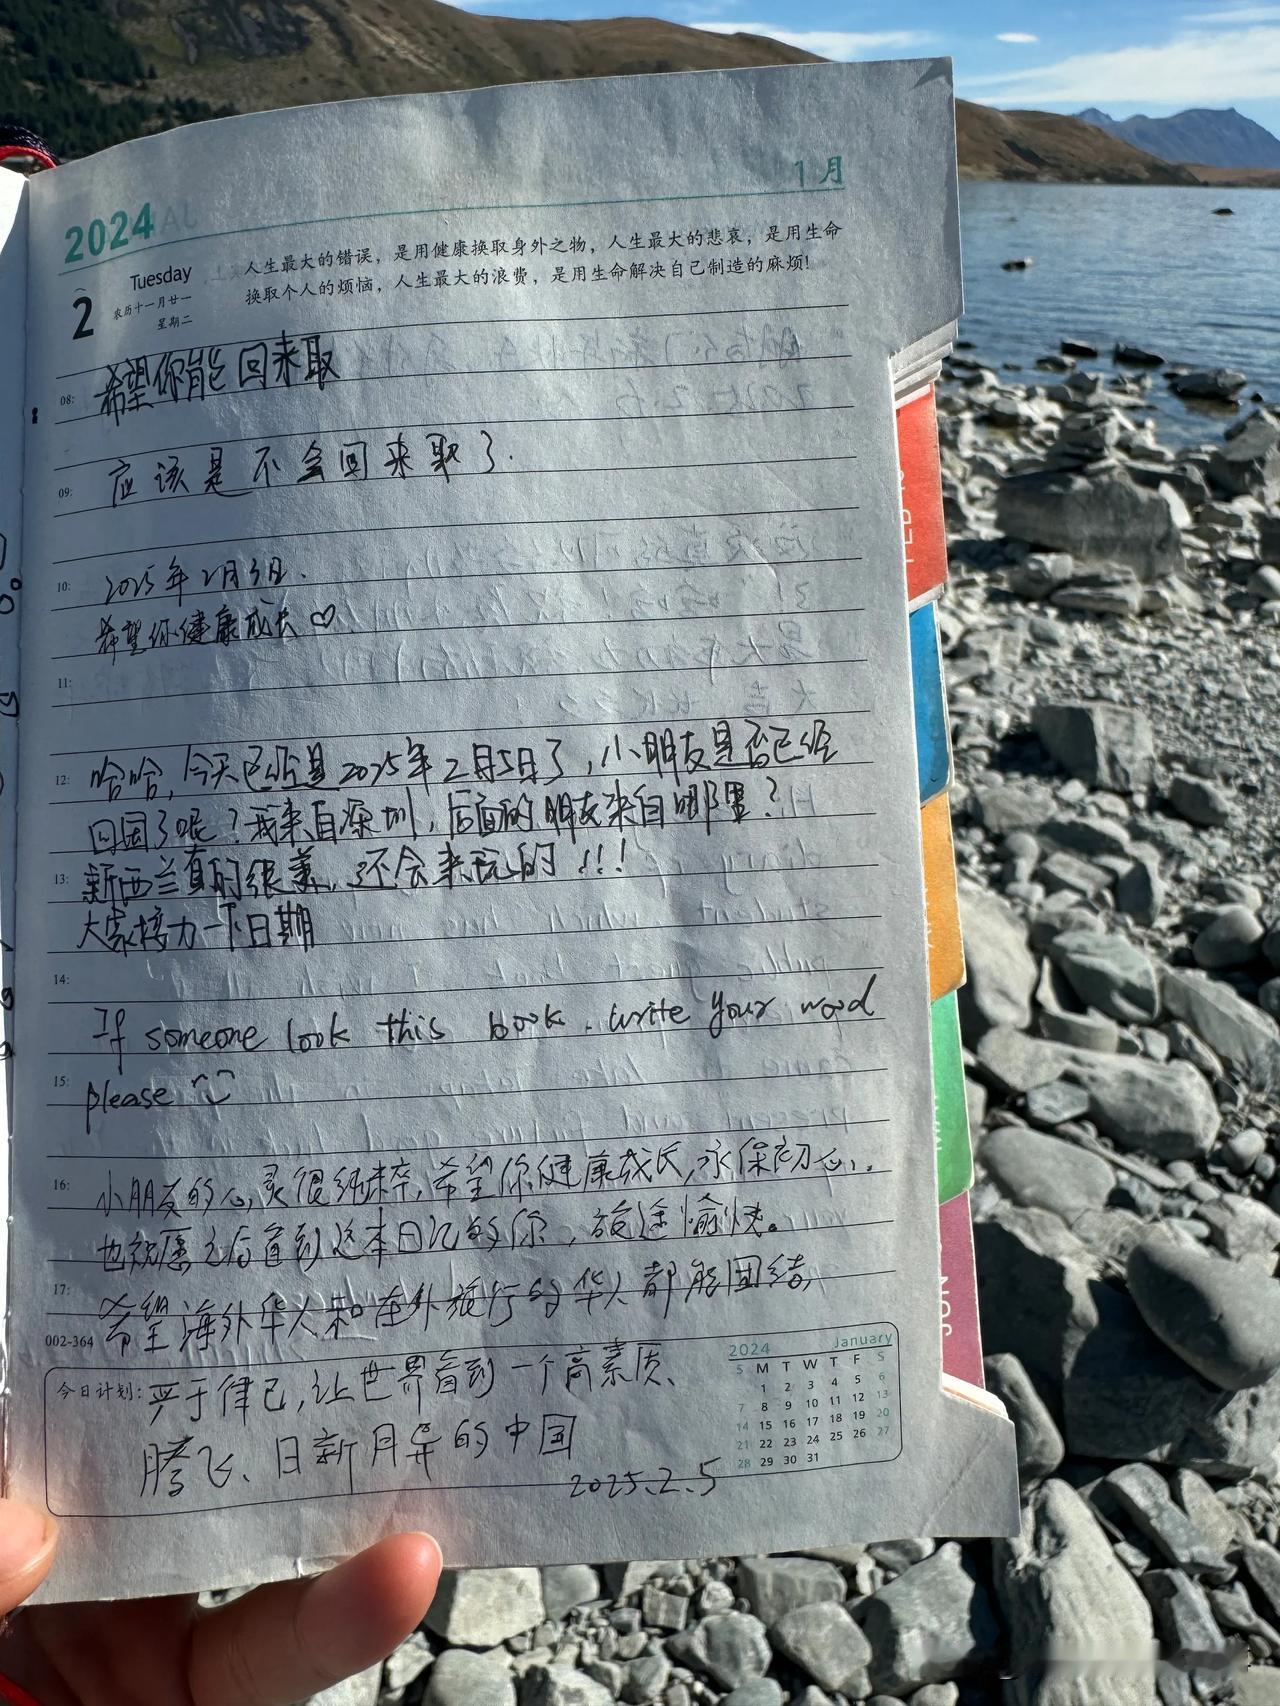 2024
1月
Tuesday
2
农历十一月廿一
星期二
人生最大的错误，是用健康换取身外之物，人生最大的悲哀，是用生命
换取个人的烦恼，人生最大的浪费，是用生命解决自己制造的麻烦！
希望你能回来取
08:
应该是不会回来取了.
09:
10: 2025年2月3日.
希望你健康成长♡
11:
12: 哈哈，今天已经是2025年2月5日了，小朋友是否已经
回国了呢？我来自深圳，后面的朋友来自哪里？
13: 新西兰真的很美，还会来玩的！！！
大家接力一下日期
14:
If someone look this book. write your word
15: please
16: 小朋友的心灵很纯粹，希望你健康成长，永保初心，
也祝愿之后看到这本日记的你，旅途愉快。
17: 希望海外华人和在外旅行的华人都能团结，
002-364
今日计划: 严于律己，让世界看到一个高素质、
腾飞、日新月异的中国
2025.2.5
2024 January
S M T W T F S
1 2 3 4 5 6
7 8 9 10 11 12 13
14 15 16 17 18 19 20
21 22 23 24 25 26 27
28 29 30 31